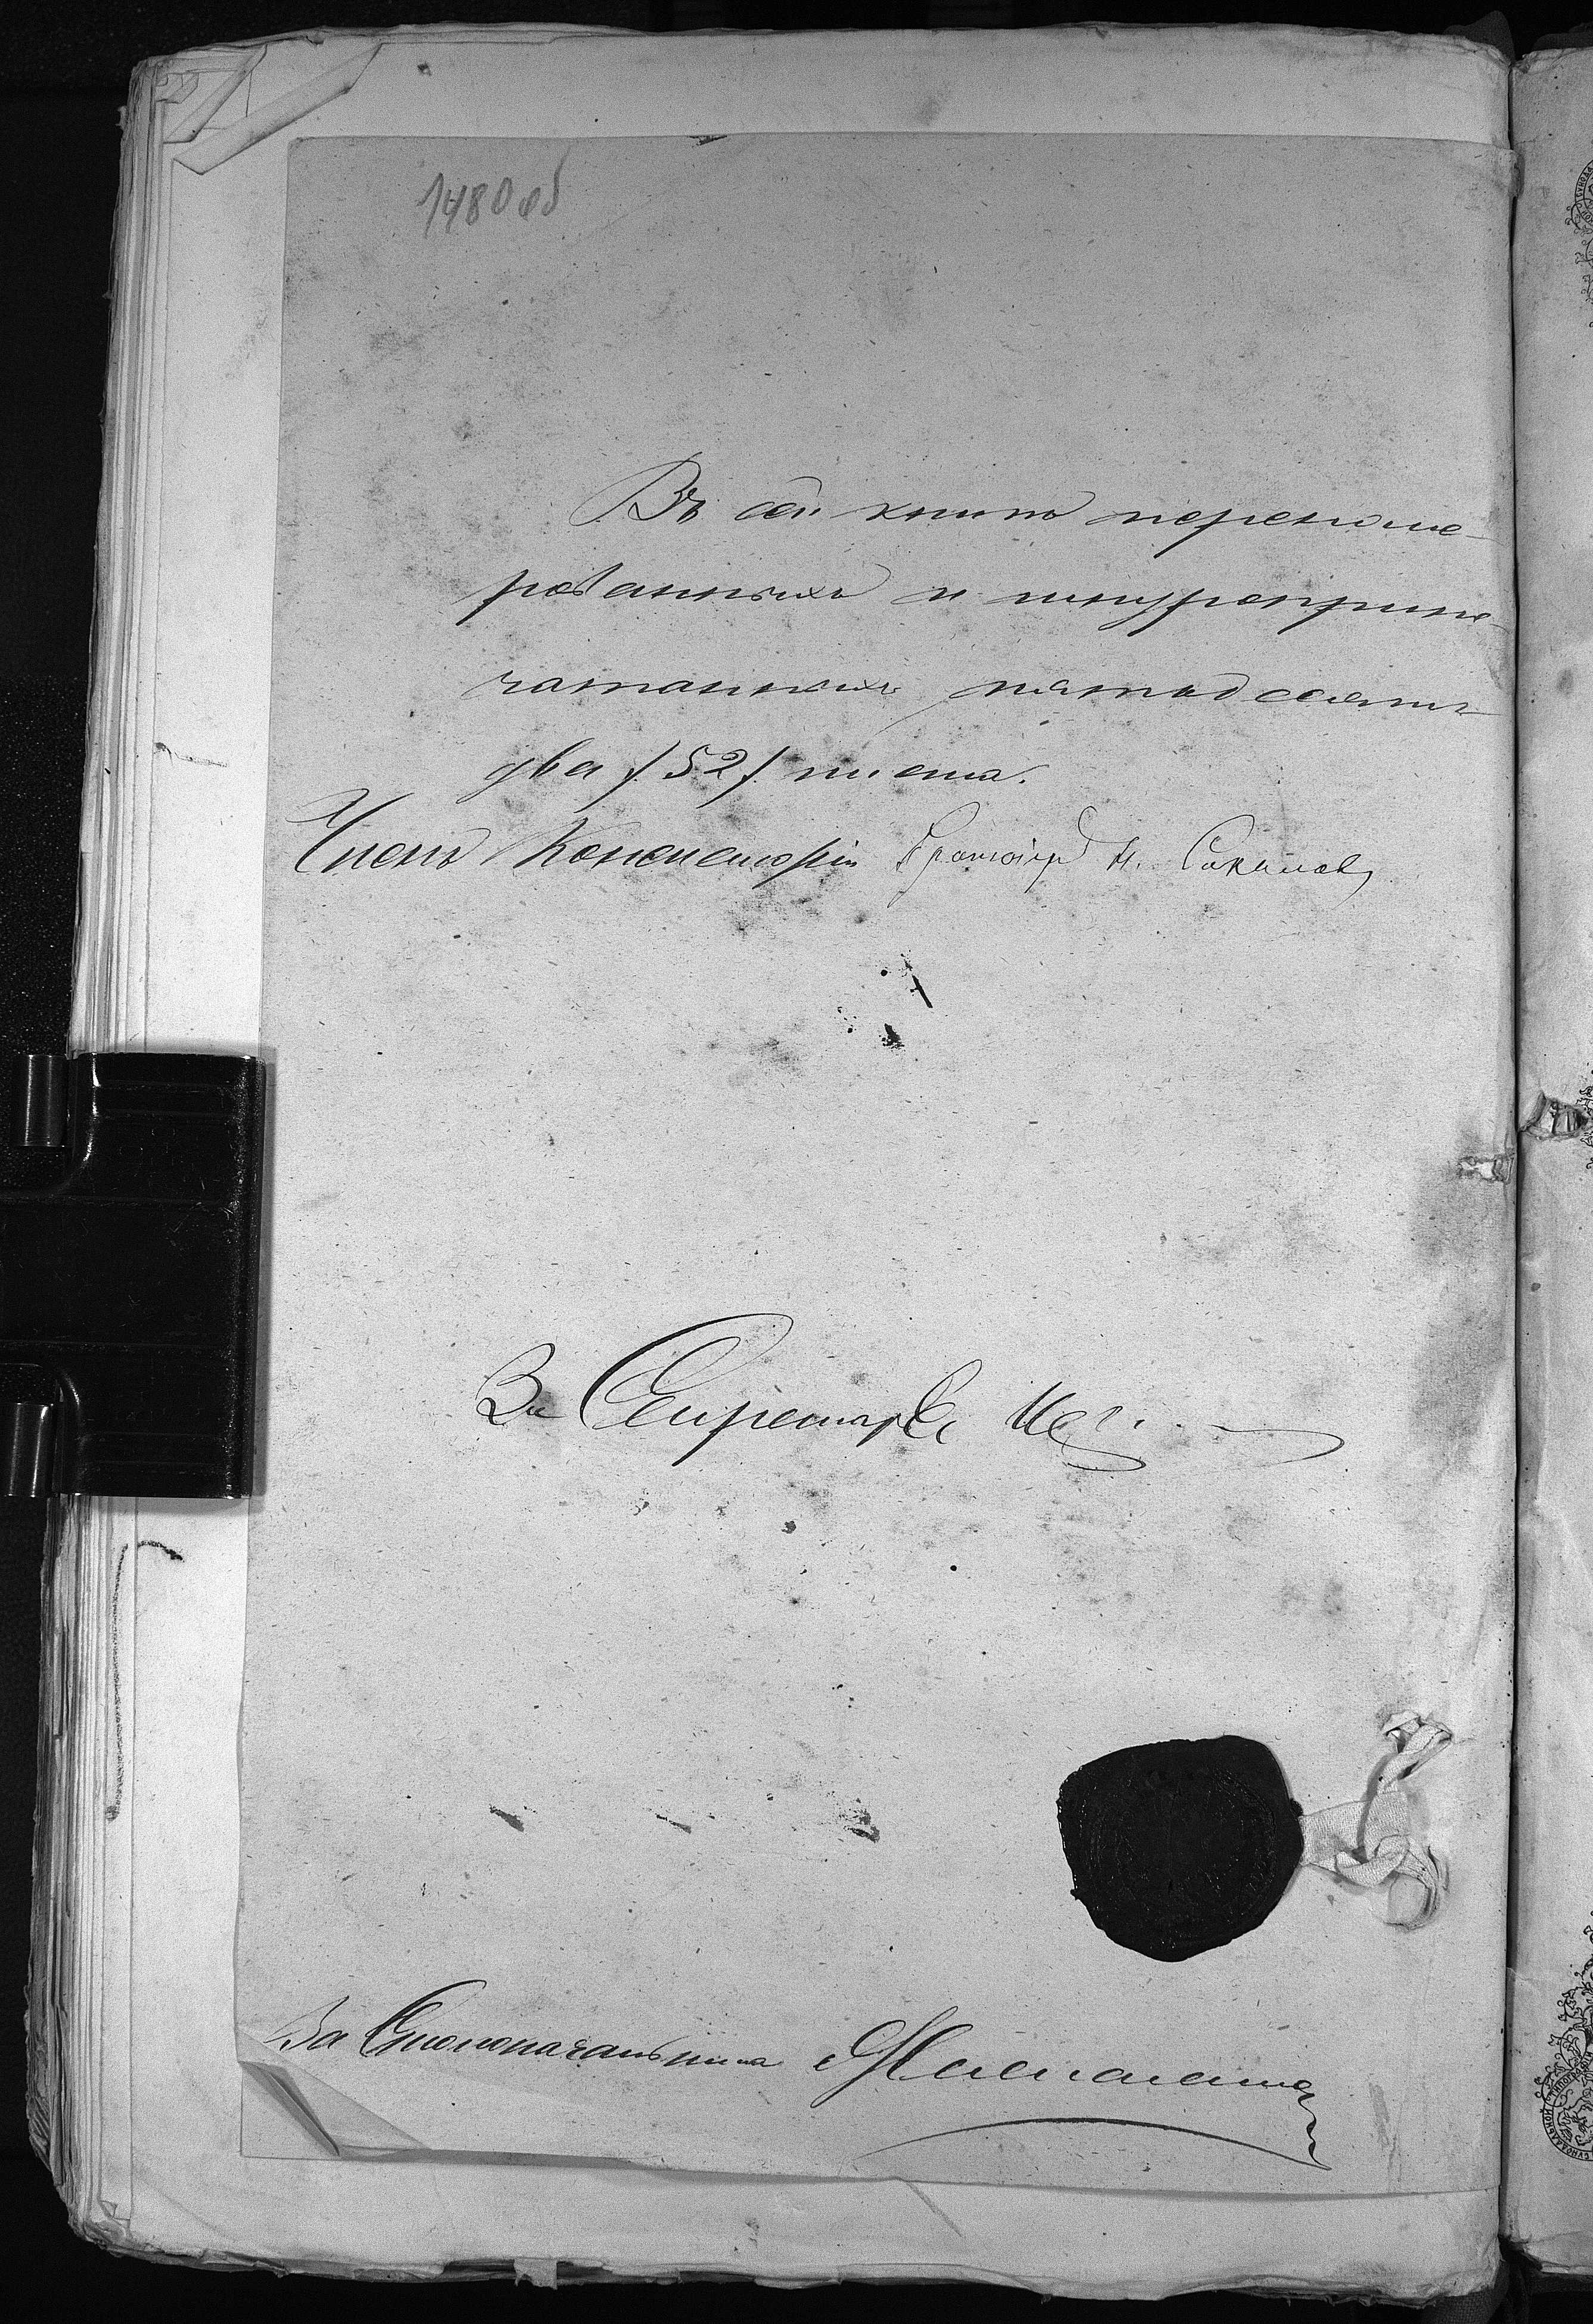 1480 об
Въ сей книгѣ перенуме-
рованныхъ и шнуроприпе-
чатанныхъ пятьдесятъ
два /52/ листа.
Членъ Консисторіи Протоіер Н. Соколовъ
За Секретаря
За Столоначальника